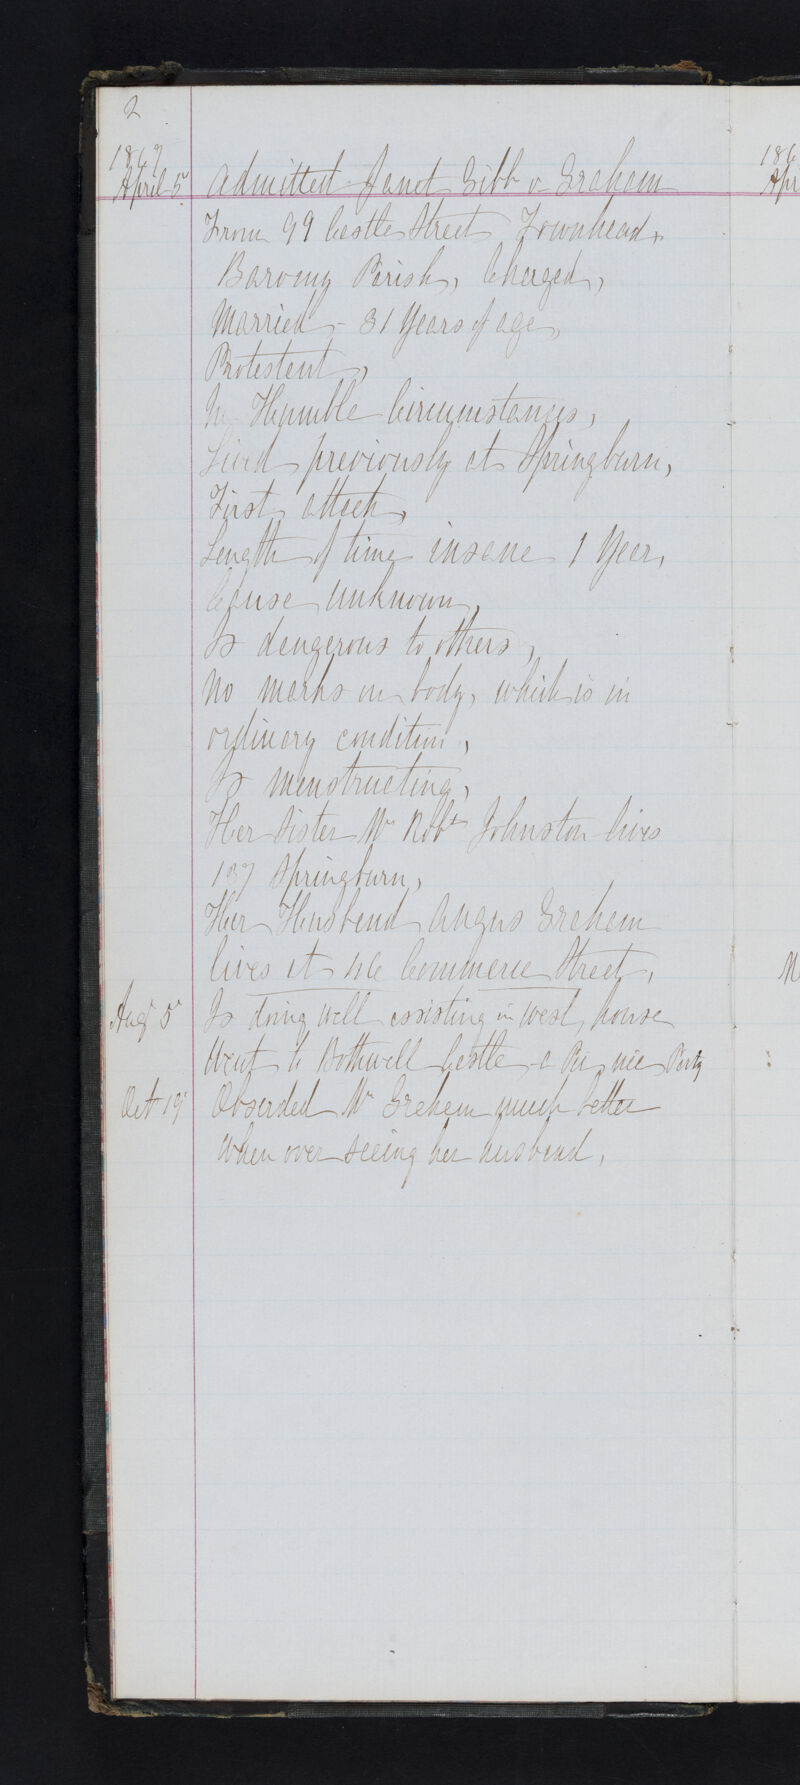 2
1867
April 5 Admitted Janet Gibb or Graham
From 99 Castle Street Townhead,
Barony Parish, Charged,
Married - 31 Years of age,
Protestant,
In Humble Circumstances,
Lived previously at Springburn,
First attack,
Length of time insane 1 Year,
Cause unknown,
Is dangerous to others,
No marks on body, which is in
ordinary condition,
Is menstruating,
Her Sister Mrs Robt Johnston lives
137 Springburn,
Her Husband Angus Graham
lives at Commerce Street,
Augt 5 Is doing well assisting in West house
Went to Bothwell Castle a Pic nic Party
Oct 19 Mrs Graham much better
when over seeing her husband,
186
Apri